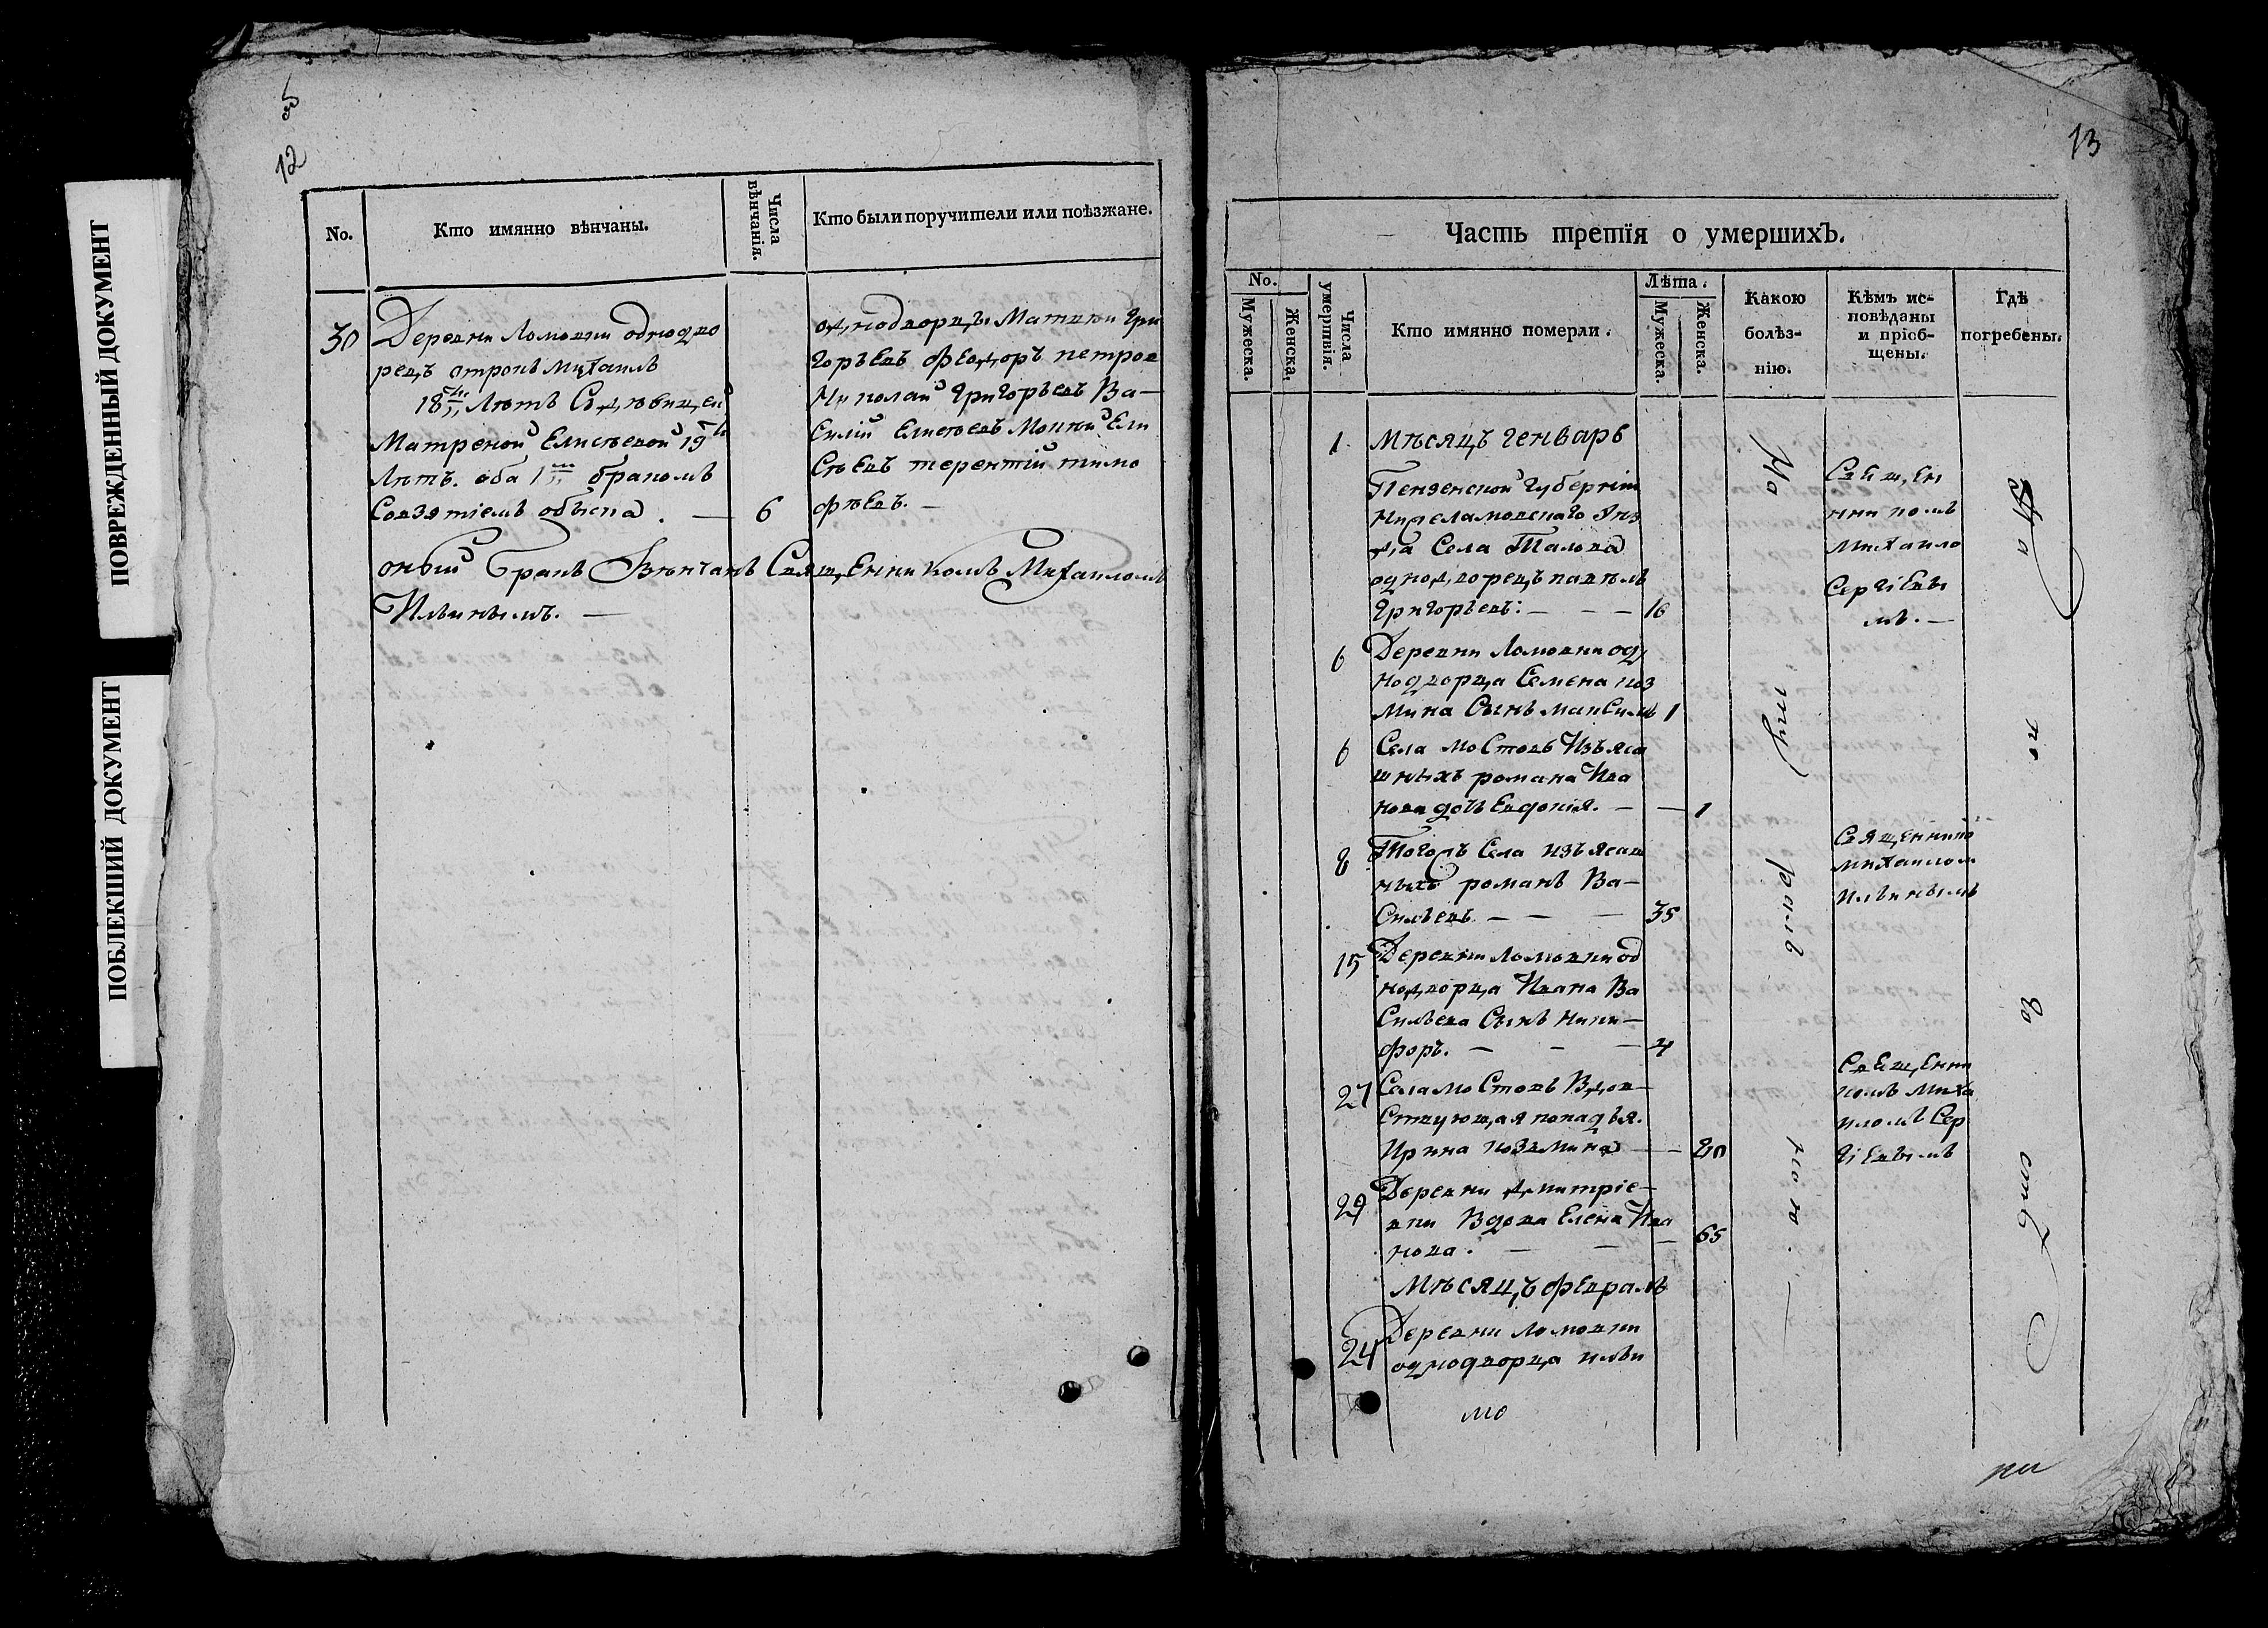 ПОВРЕЖДЕННЫЙ ДОКУМЕНТ
ПОБЛЕКШИЙ ДОКУМЕНТ
12
No.
Кто имянно вѣнчаны.
Числа вѣнчанія.
Кто были поручители или поѣзжане.
30
Деревни Ломовки однодво
рецъ отрокъ Михаилъ
18ти лѣтъ Сдѣвицей
Матреной Елисѣевой 19ть
лѣтъ. оба 1мъ бракомъ
Совзятіемъ обыска. —
6
однодворцы Матвѣй Гри
горьевъ Федоръ петров
Николай Григорьевъ Ва—
силій Елисѣевъ Мокѣй Ели
сѣевъ терентій тимо
фѣевъ. —
оный бракъ Вѣнчанъ Священникомъ Михаиломъ
Ильинымъ. —
13
Часть третїя о умершихъ.
No.
Мужеска.
Женска.
Числа умертвія.
Кто имянно померли.
Лѣта.
Мужеска.
Женска.
Какою
болѣз-
нію.
Кѣмъ ис-
повѣданы
и пріоб-
щены.
Гдѣ
погребены.
1
Мѣсяцъ генварь
Пензенской Губерніи
Нижеламовскаго Уез
да Села
однодворецъ павелъ
Григорьевъ: — — —
16
Свещен
никомъ
Михаило
Сергіевы
мъ. —
6
Деревни Ломовки од
нодворца Семена коз
мина Сынъ максимъ
1
6
Села мостовъ Изъяса
шныхъ романа Ива
нова дочь Евдокія. —
— 1
8
Тогожъ Села изъ ясаш
ныхъ романъ Ва—
сильевъ. — — —
35
Священнико
михаилом
Ильинымъ
15
Деревни ломовки од
нодворца Ивана Ва
сильева Сынъ Ники—
форъ. — — —
4
27
Села мостовъ Вдов—
ствующая попадья.
Ирина козмина —
— 80
Свещенни
комъ Миха
иломъ Сер
гіевымъ
29
Деревни дмитріе—
вки Вдова Елена Ива
нова. — — —
65
Мѣсяцъ февраль
24
Деревни Ломовки
однодворца ильи
мо
На
ту
раль
ною. —
На
по
го
стѣ
ки